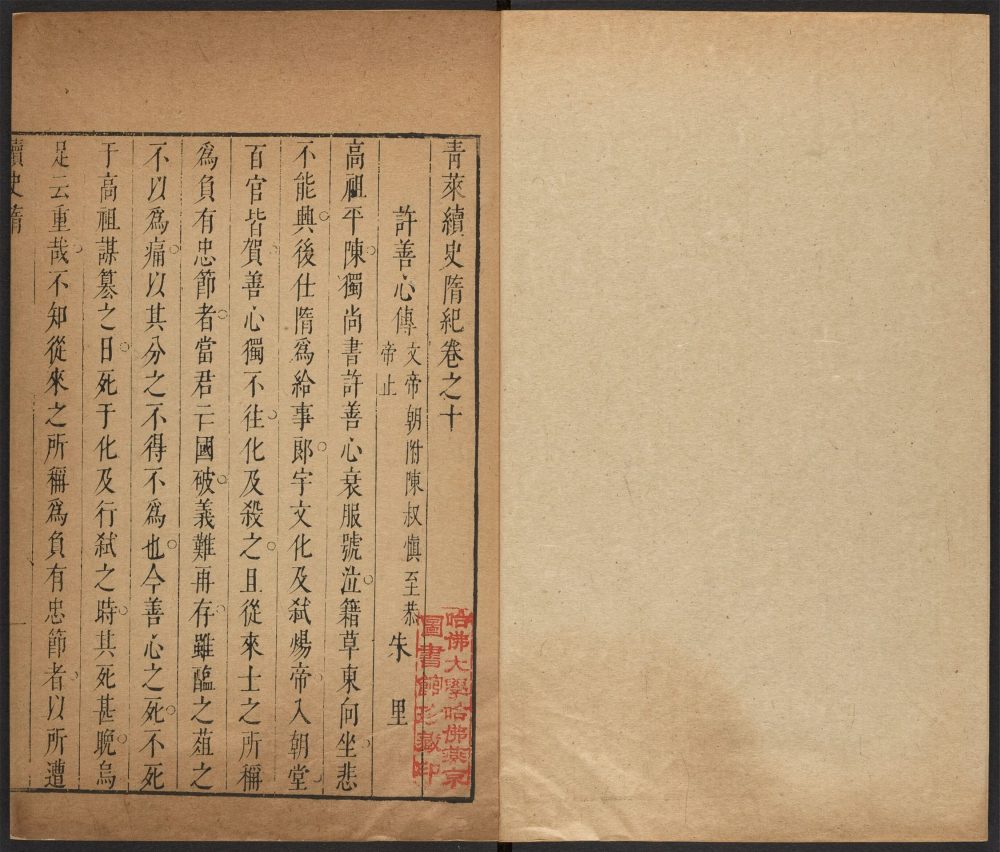 青萊續史隋紀卷之十
許善心傳文帝朝附陳叔慎至恭
帝止
朱里
高祖平陳獨尚書許善心衰服號泣籍草東向坐悲
不能興後仕隋爲給事郎宇文化及弑煬帝入朝堂
百官皆賀善心獨不往化及殺之且從來士之所稱
爲負有忠節者當君亡國破義難再存雖臨之葅之
不以爲痛以其分之不得不爲也今善心之死不死
于高祖謀篡之日死于化及行弑之時其死甚晚烏
足云重哉不知從來之所稱爲負有忠節者以所遭
續史隋
哈佛大學哈佛燕京
圖書館珍藏印